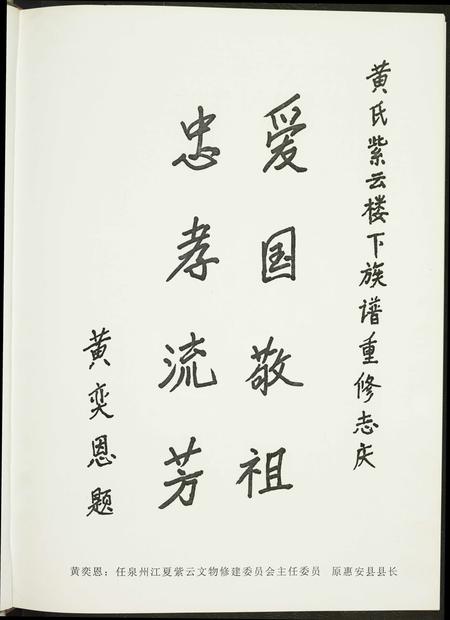 黄氏紫云楼下族谱重修志庆
爱国敬祖
忠孝流芳
黄奕恩题
黄奕恩：任泉州江夏紫云文物修建委员会主任委员 原惠安县县长